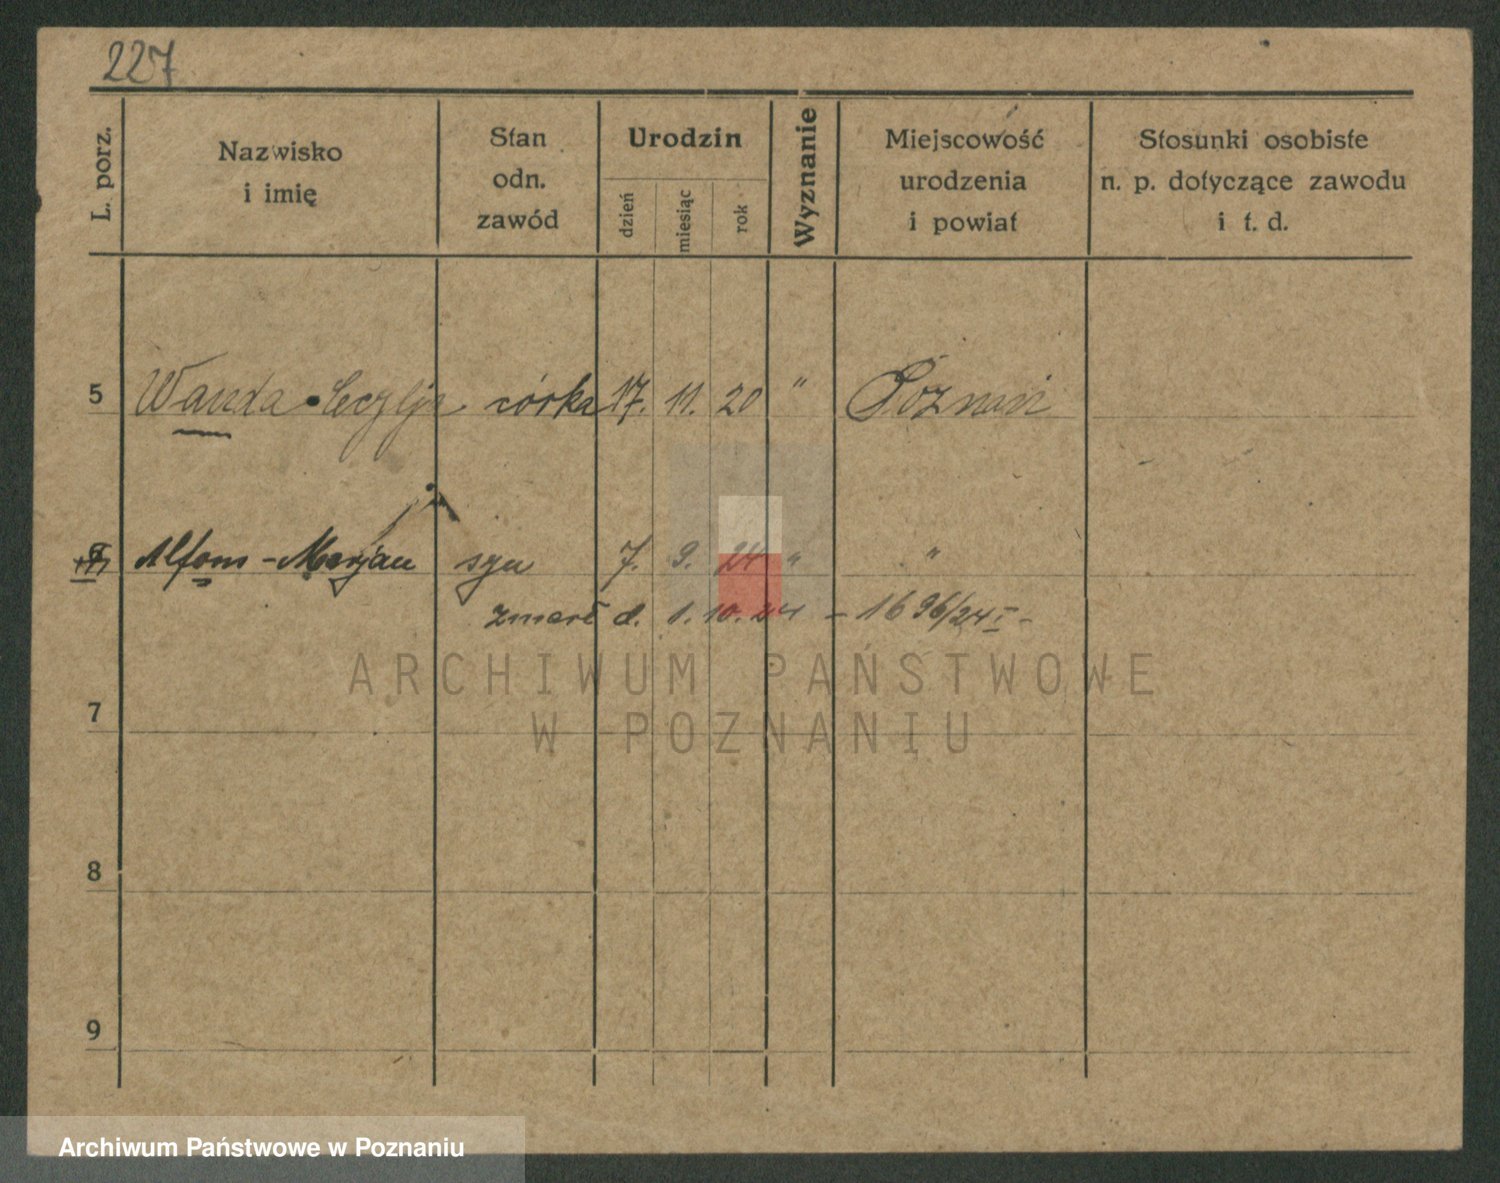 227
L. porz.
Nazwisko
i imię
Stan
odn.
zawód
Urodzin
dzień
miesiąc
rok
Wyznanie
Miejscowość
urodzenia
i powiat
Stosunki osobiste
n. p. dotyczące zawodu
i t. d.
5 Wanda Cecylja córka 17. 11. 20 " Poznań
6 Alfons - Marjan syn 7. 9. 24 " "
zmarł d. 1. 10. 24 - 1696/24 I -
ARCHIWUM PAŃSTWOWE
W POZNANIU
7
8
9
Archiwum Państwowe w Poznaniu